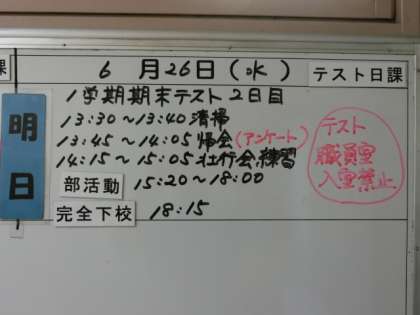 課
6月26日(水) テスト日課
明日
1学期期末テスト2日目
13:30〜13:40 清掃
13:45〜14:05 帰会(アンケート)
14:15〜15:05 壮行会練習
部活動 15:20〜18:00
完全下校 18:15
テスト
職員室
入室禁止